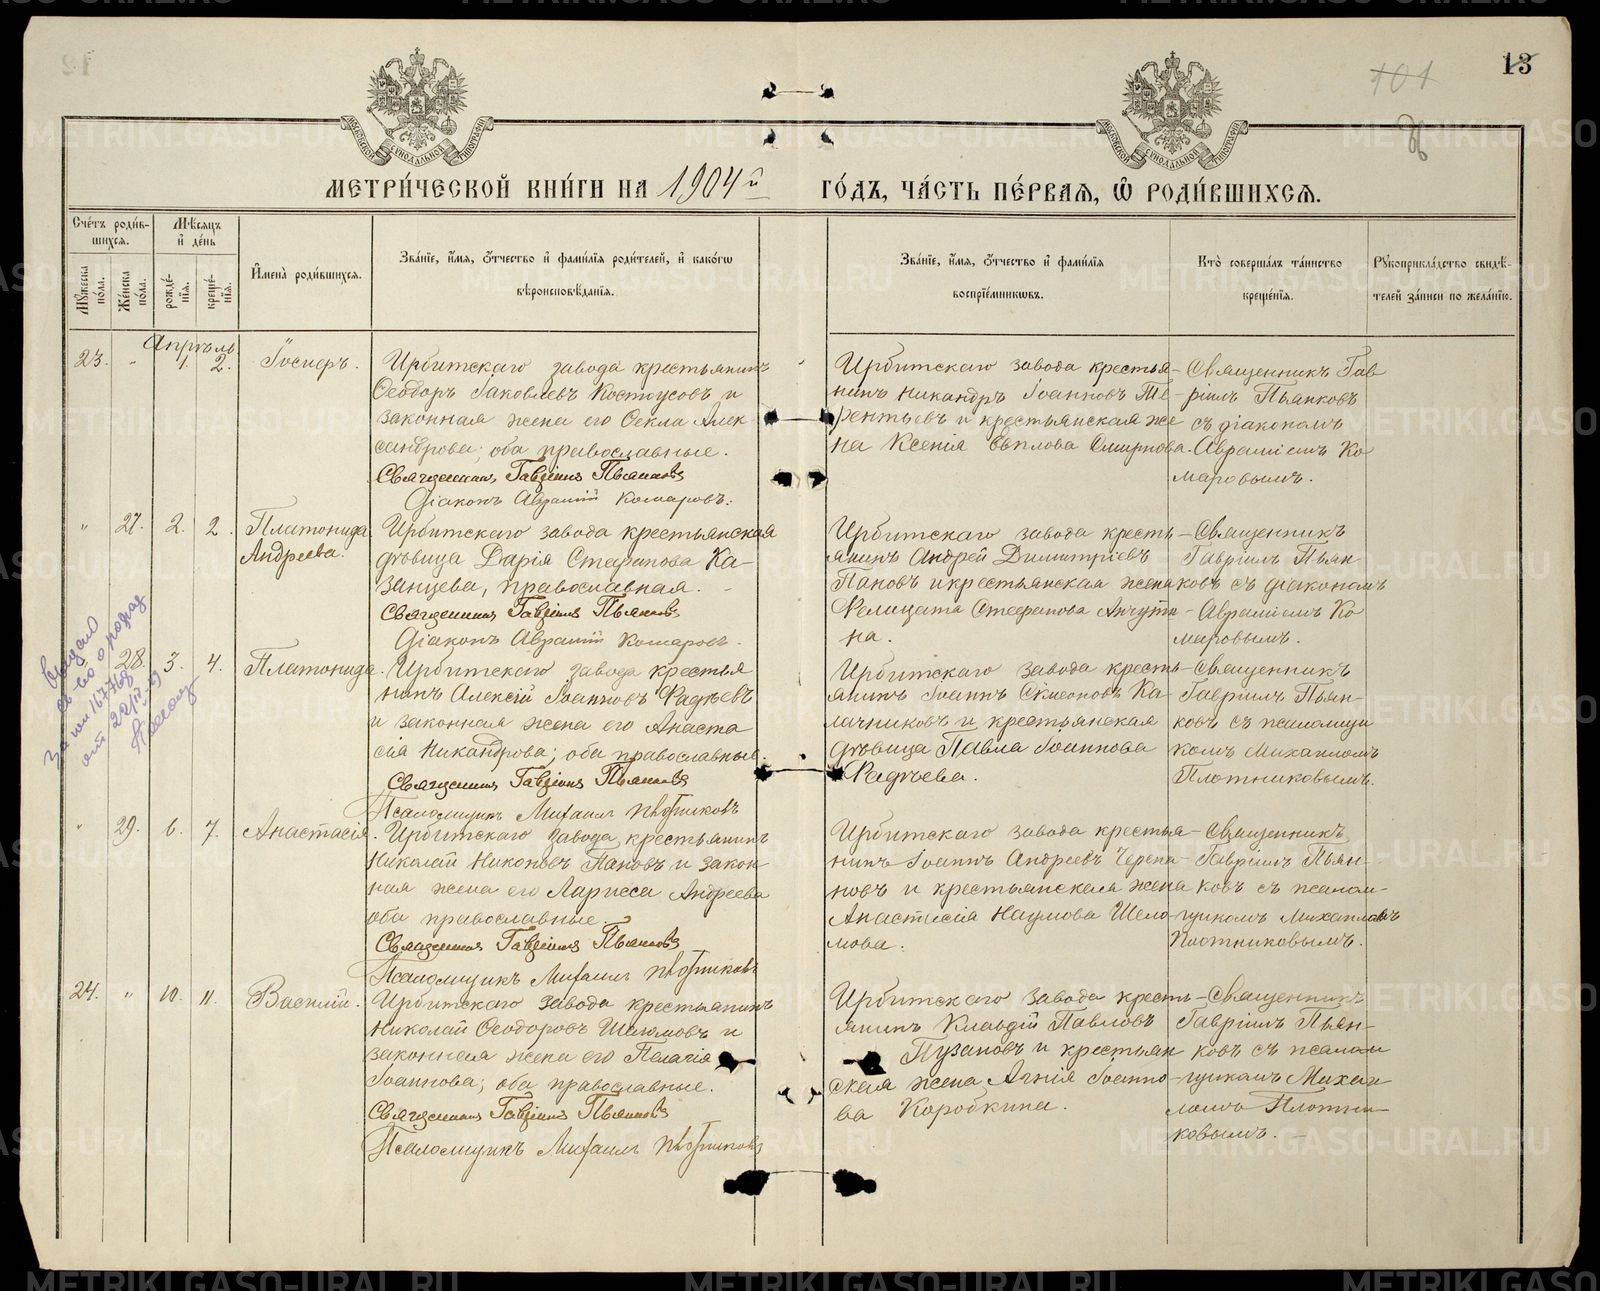 13
101
МЕТРИ́ЧЕСКОЙ КНИ́ГИ НА 1904й ГО́ДЪ, ЧА́СТЬ ПЕ́РВАЯ, Ѽ РОДИ́ВШИХСЯ.
Сче́тъ роди́вшихся.
Му́жеска по́ла.
Же́нска по́ла.
Мѣ́сяцъ и де́нь
рожде́нїя.
креще́нїя.
И҆мена̀ роди́вшихся.
Зва́нїе, и҆́мя, ѻ҆́тчество и҆ фами́лїѧ роди́телей, и҆ како́гѡ
вѣроисповѣ́данїя.
Зва́нїе, и҆́мя, ѻ҆́тчество и҆ фами́лїѧ
воспрїе́мникѡвъ.
Кто̀ соверша́лъ та́инство
креще́нїя.
Рꙋкоприкла́дство свидѣ́-
телей за́писи по жела́нїю.
Апрѣль
23. " 1. 2. Іосифъ.
Ирбитскаго завода крестьянинъ
Ѳеодоръ Іаковлевъ Костоусовъ и
законная жена его Ѳекла Алек
сандрова; оба православные.
Священникъ Гавріилъ Пьянковъ
Діаконъ Аврамій Комаровъ.
Ирбитскаго завода крестья-
нинъ Никандръ Іоанновъ Те-
рентьевъ и крестьянская же
на Ксенія Смирнова.
Священникъ Гав
ріилъ Пьянковъ
съ діакономъ
Авраміемъ Ко
маровымъ.
" 27. 2. 2. Платонида
Андреева.
Ирбитскаго завода крестьянская
дѣвица Дарія Стефанова Ка-
занцева, православная.
Священникъ Гавріилъ Пьянковъ
Діаконъ Аврамій Комаровъ.
Ирбитскаго завода кресть-
янинъ Андрей Димитріевъ
Пановъ и крестьянская жена
Фелицата Стефанова Анчути-
на.
Священникъ
Гавріилъ Пьян
ковъ съ діакономъ
Авраміемъ Ко
маровымъ.
28. 3. 4. Платонида.
Ирбитскаго завода крестья
нинъ Алексій Іоанновъ Фадѣевъ
и законная жена его Анаста
сія Никандрова; оба православные.
Священникъ Гавріилъ Пьянковъ
Псаломщикъ Михаилъ Плотниковъ
Ирбитскаго завода кресть-
янинъ Іоаннъ Симеоновъ Ка-
лачниковъ и крестьянская
дѣвица Павла Іоаннова
Фадѣева.
Священникъ
Гавріилъ Пьян-
ковъ съ псаломщи
комъ Михаиломъ
Плотниковымъ.
Выдано
св-во о рожд
от 22/IV-49
" 29. 6. 7. Анастасія.
Ирбитскаго завода крестьянинъ
Николай Никоновъ Пановъ и закон-
ная жена его Ларисса Андреева
оба православные.
Священникъ Гавріилъ Пьянковъ
Псаломщикъ Михаилъ Плотниковъ
Ирбитскаго завода крестья-
нинъ Іоаннъ Андреевъ Черепа-
новъ и крестьянская жена
Анастасія Наумова Шело-
мова.
Священникъ
Гавріилъ Пьян-
ковъ съ псалом-
щикомъ Михаиломъ
Плотниковымъ.
24. " 10. 11. Василій.
Ирбитскаго завода крестьянинъ
Николай Ѳеодоровъ Шеломовъ и
законная жена его Пелагія
Іоаннова; оба православные.
Священникъ Гавріилъ Пьянковъ
Псаломщикъ Михаилъ Плотниковъ
Ирбитскаго завода кресть-
янинъ Клавдій Павловъ
Пузановъ и крестьян
ская жена Агнія Іоанно-
ва Коробкина.
Священникъ
Гавріилъ Пьян-
ковъ съ псалом
щикомъ Михаи
ломъ Плотни-
ковымъ.
METRIKI.GASO-URAL.RU